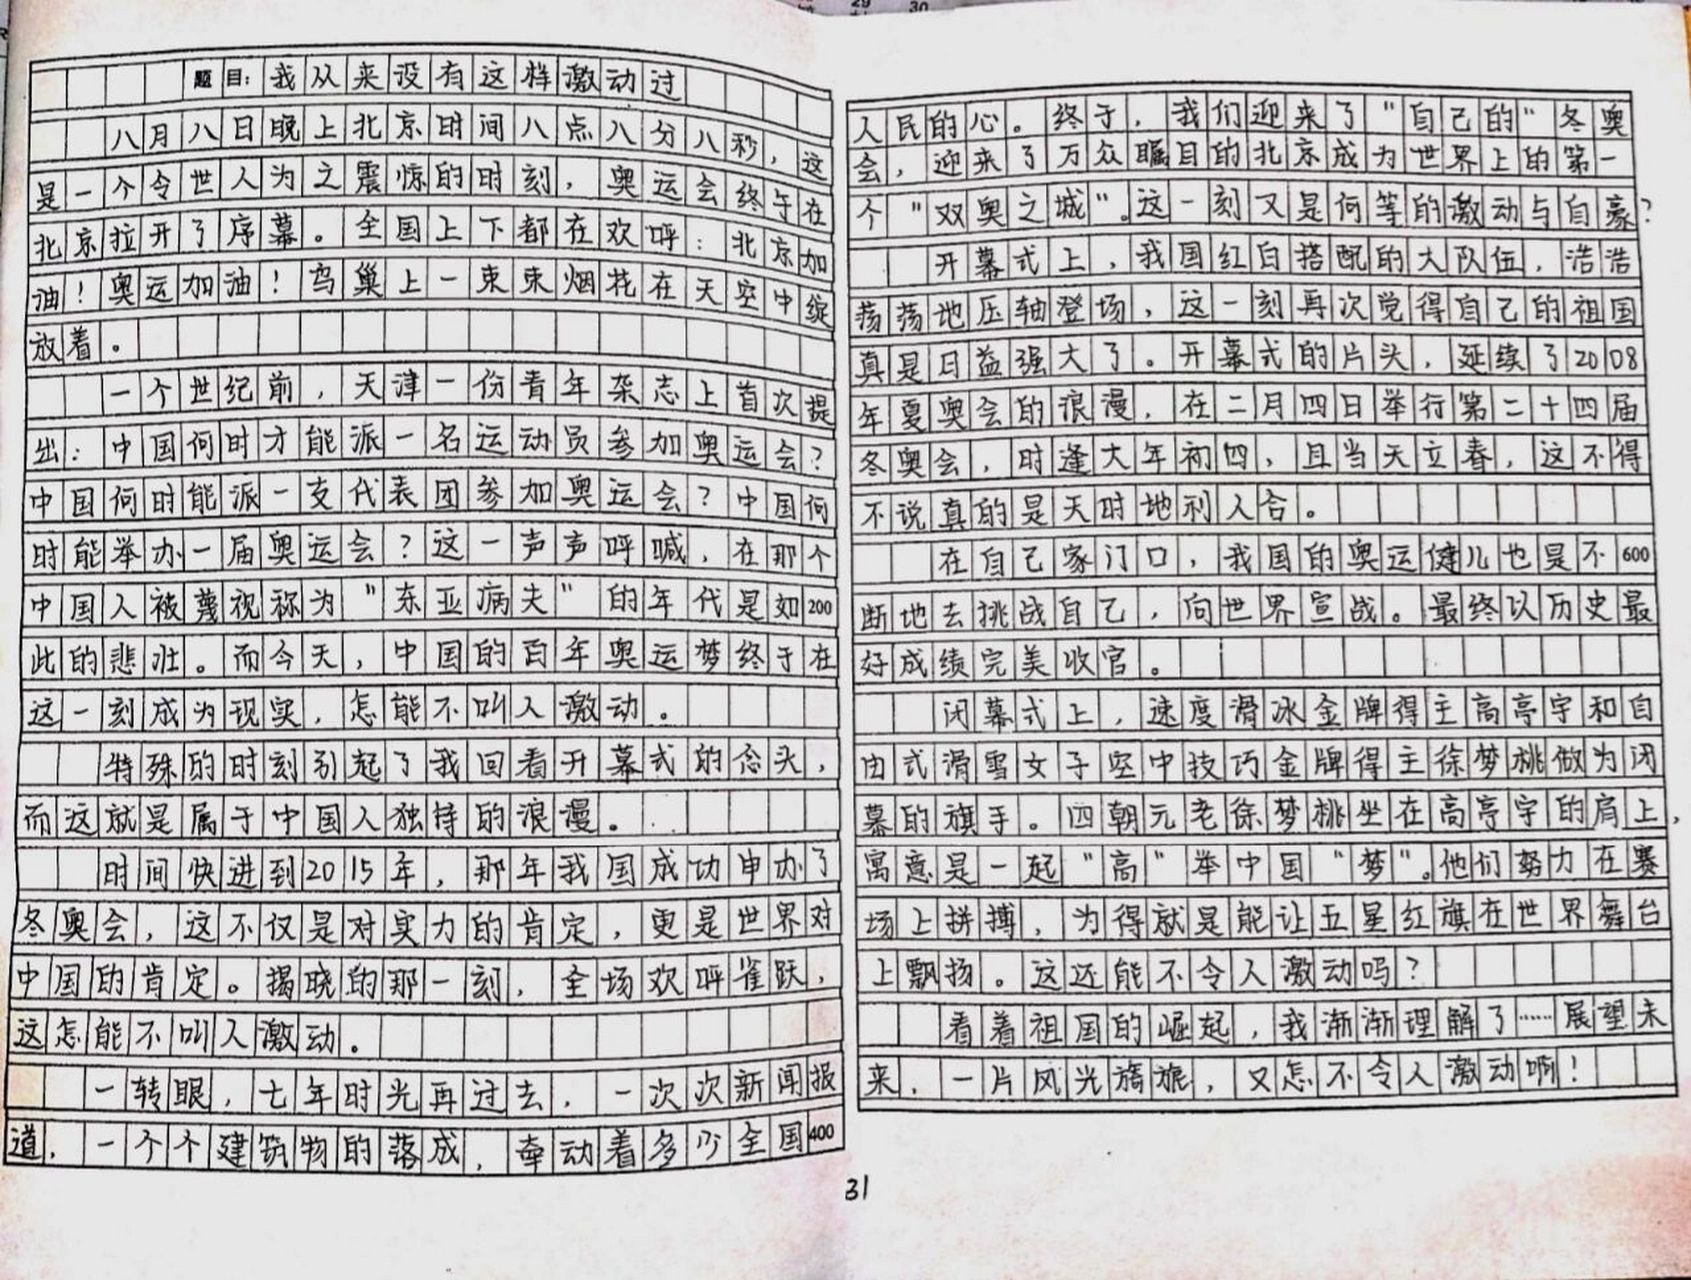 29
30
题目：我从来没有这样激动过
八月八日晚上北京时间八点八分八秒，这
是一个令世人为之震惊的时刻，奥运会终于在
北京拉开了序幕。全国上下都在欢呼：北京加
油！奥运加油！鸟巢上一束束烟花在天空中绽
放着。
一个世纪前，天津一份青年杂志上首次提
出：中国何时才能派一名运动员参加奥运会？
中国何时能派一支代表团参加奥运会？中国何
时能举办一届奥运会？这一声声呼喊，在那个
中国人被蔑视称为"东亚病夫"的年代是如200
此的悲壮。而今天，中国的百年奥运梦终于在
这一刻成为现实，怎能不叫人激动。
特殊的时刻引起了我回看开幕式的念头，
而这就是属于中国人独特的浪漫。
时间快进到2015年，那年我国成功申办了
冬奥会，这不仅是对实力的肯定，更是世界对
中国的肯定。揭晓的那一刻，全场欢呼雀跃，
这怎能不叫人激动。
一转眼，七年时光再过去，一次次新闻报
道，一个个建筑物的落成，牵动着多少全国400
人民的心。终于，我们迎来了"自己的"冬奥
会，迎来了万众瞩目的北京成为世界上的第一
个"双奥之城"。这一刻又是何等的激动与自豪？
开幕式上，我国红白搭配的大队伍，浩浩
荡荡地压轴登场，这一刻再次觉得自己的祖国
真是日益强大了。开幕式的片头，延续了2008
年夏奥会的浪漫，在二月四日举行第二十四届
冬奥会，时逢大年初四，且当天立春，这不得
不说真的是天时地利人合。
在自己家门口，我国的奥运健儿也是不600
断地去挑战自己，向世界宣战。最终以历史最
好成绩完美收官。
闭幕式上，速度滑冰金牌得主高亭宇和自
由式滑雪女子空中技巧金牌得主徐梦桃做为闭
幕的旗手。四朝元老徐梦桃坐在高亭宇的肩上，
寓意是一起"高"举中国"梦"。他们努力在赛
场上拼搏，为得就是能让五星红旗在世界舞台
上飘扬。这还能不令人激动吗？
看着祖国的崛起，我渐渐理解了……展望未
来，一片风光旖旎，又怎不令人激动啊！
31